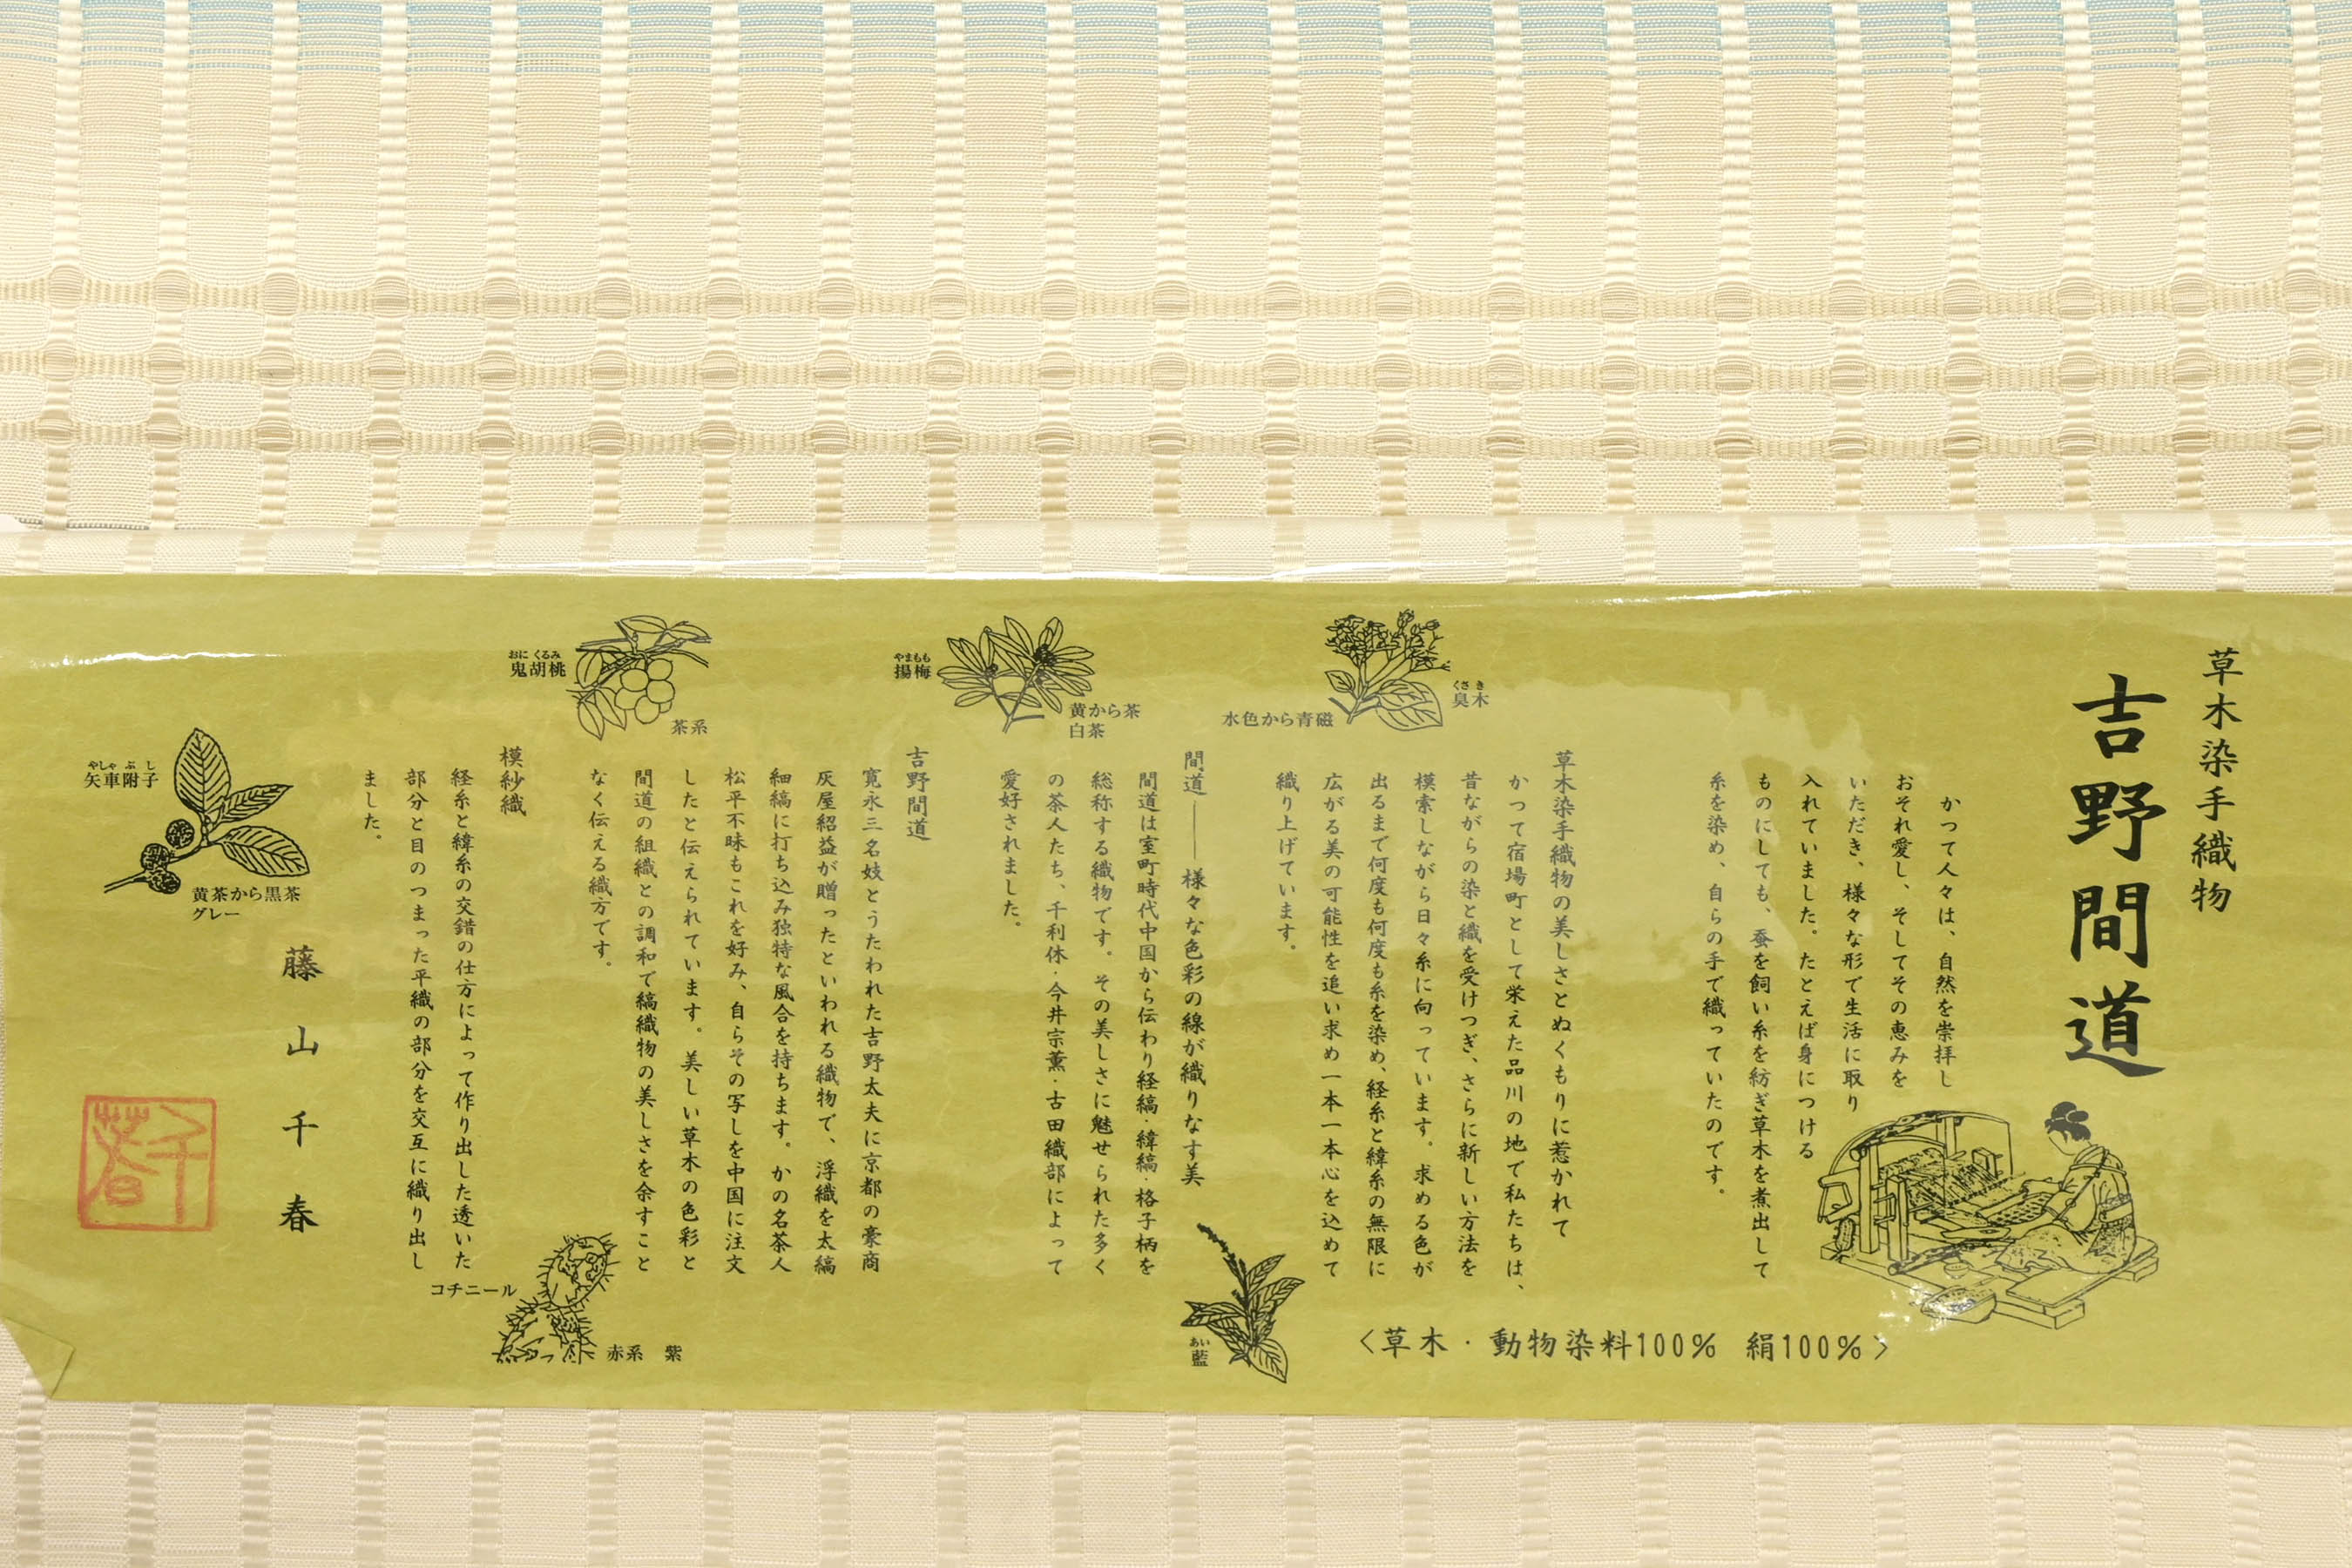 草木染手織物
吉野間道
かつて人々は、自然を崇拝し
おそれ愛し、そしてその恵みを
いただき、様々な形で生活に取り
入れていました。たとえば身につける
ものにしても、蚕を飼い糸を紡ぎ草木を煮出して
糸を染め、自らの手で織っていたのです。
草木染手織物の美しさとぬくもりに惹かれて
かつて宿場町として栄えた品川の地で私たちは、
昔ながらの染と織を受けつぎ、さらに新しい方法を
模索しながら日々糸に向っています。求める色が
出るまで何度も何度も糸を染め、経糸と緯糸の無限に
広がる美の可能性を追い求め一本一本心を込めて
織り上げています。
間道――様々な色彩の線が織りなす美
間道は室町時代中国から伝わり経縞・緯縞・格子柄を
総称する織物です。その美しさに魅せられた多く
の茶人たち、千利休・今井宗薫・古田織部によって
愛好されました。
吉野間道
寛永三名妓とうたわれた吉野太夫に京都の豪商
灰屋紹益が贈ったといわれる織物で、浮織を太縞
細縞に打ち込み独特な風合を持ちます。かの名茶人
松平不昧もこれを好み、自らその写しを中国に注文
したと伝えられています。美しい草木の色彩と
間道の組織との調和で縞織物の美しさを余すこと
なく伝える織方です。
模紗織
経糸と緯糸の交錯の仕方によって作り出した透いた
部分と目のつまった平織の部分を交互に織り出し
ました。
藤山千春
千春
くさき
臭木
水色から青磁
やまもも
揚梅
黄から茶
白茶
おにくるみ
鬼胡桃
茶系
やしゃぶし
矢車附子
黄茶から黒茶
グレー
コチニール
赤系 紫
あい
藍
<草木・動物染料100% 絹100%>